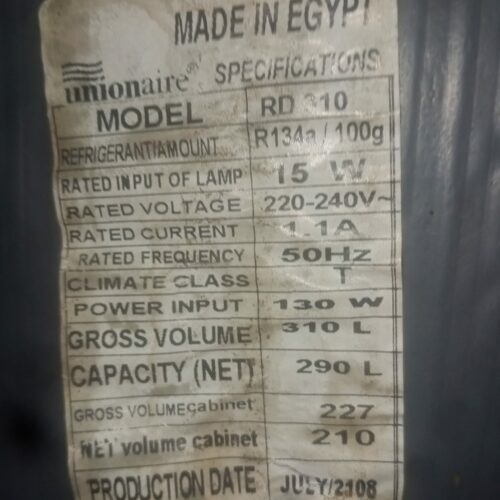 MADE IN EGYPT
unionaire SPECIFICATIONS
MODEL RD 310
REFRIGERANT/AMOUNT R134a / 100g
RATED INPUT OF LAMP 15 W
RATED VOLTAGE 220-240V~
RATED CURRENT 1.1A
RATED FREQUENCY 50Hz
CLIMATE CLASS T
POWER INPUT 130 W
GROSS VOLUME 310 L
CAPACITY (NET) 290 L
GROSS VOLUMEcabinet 227
NET volume cabinet 210
PRODUCTION DATE JULY/2108